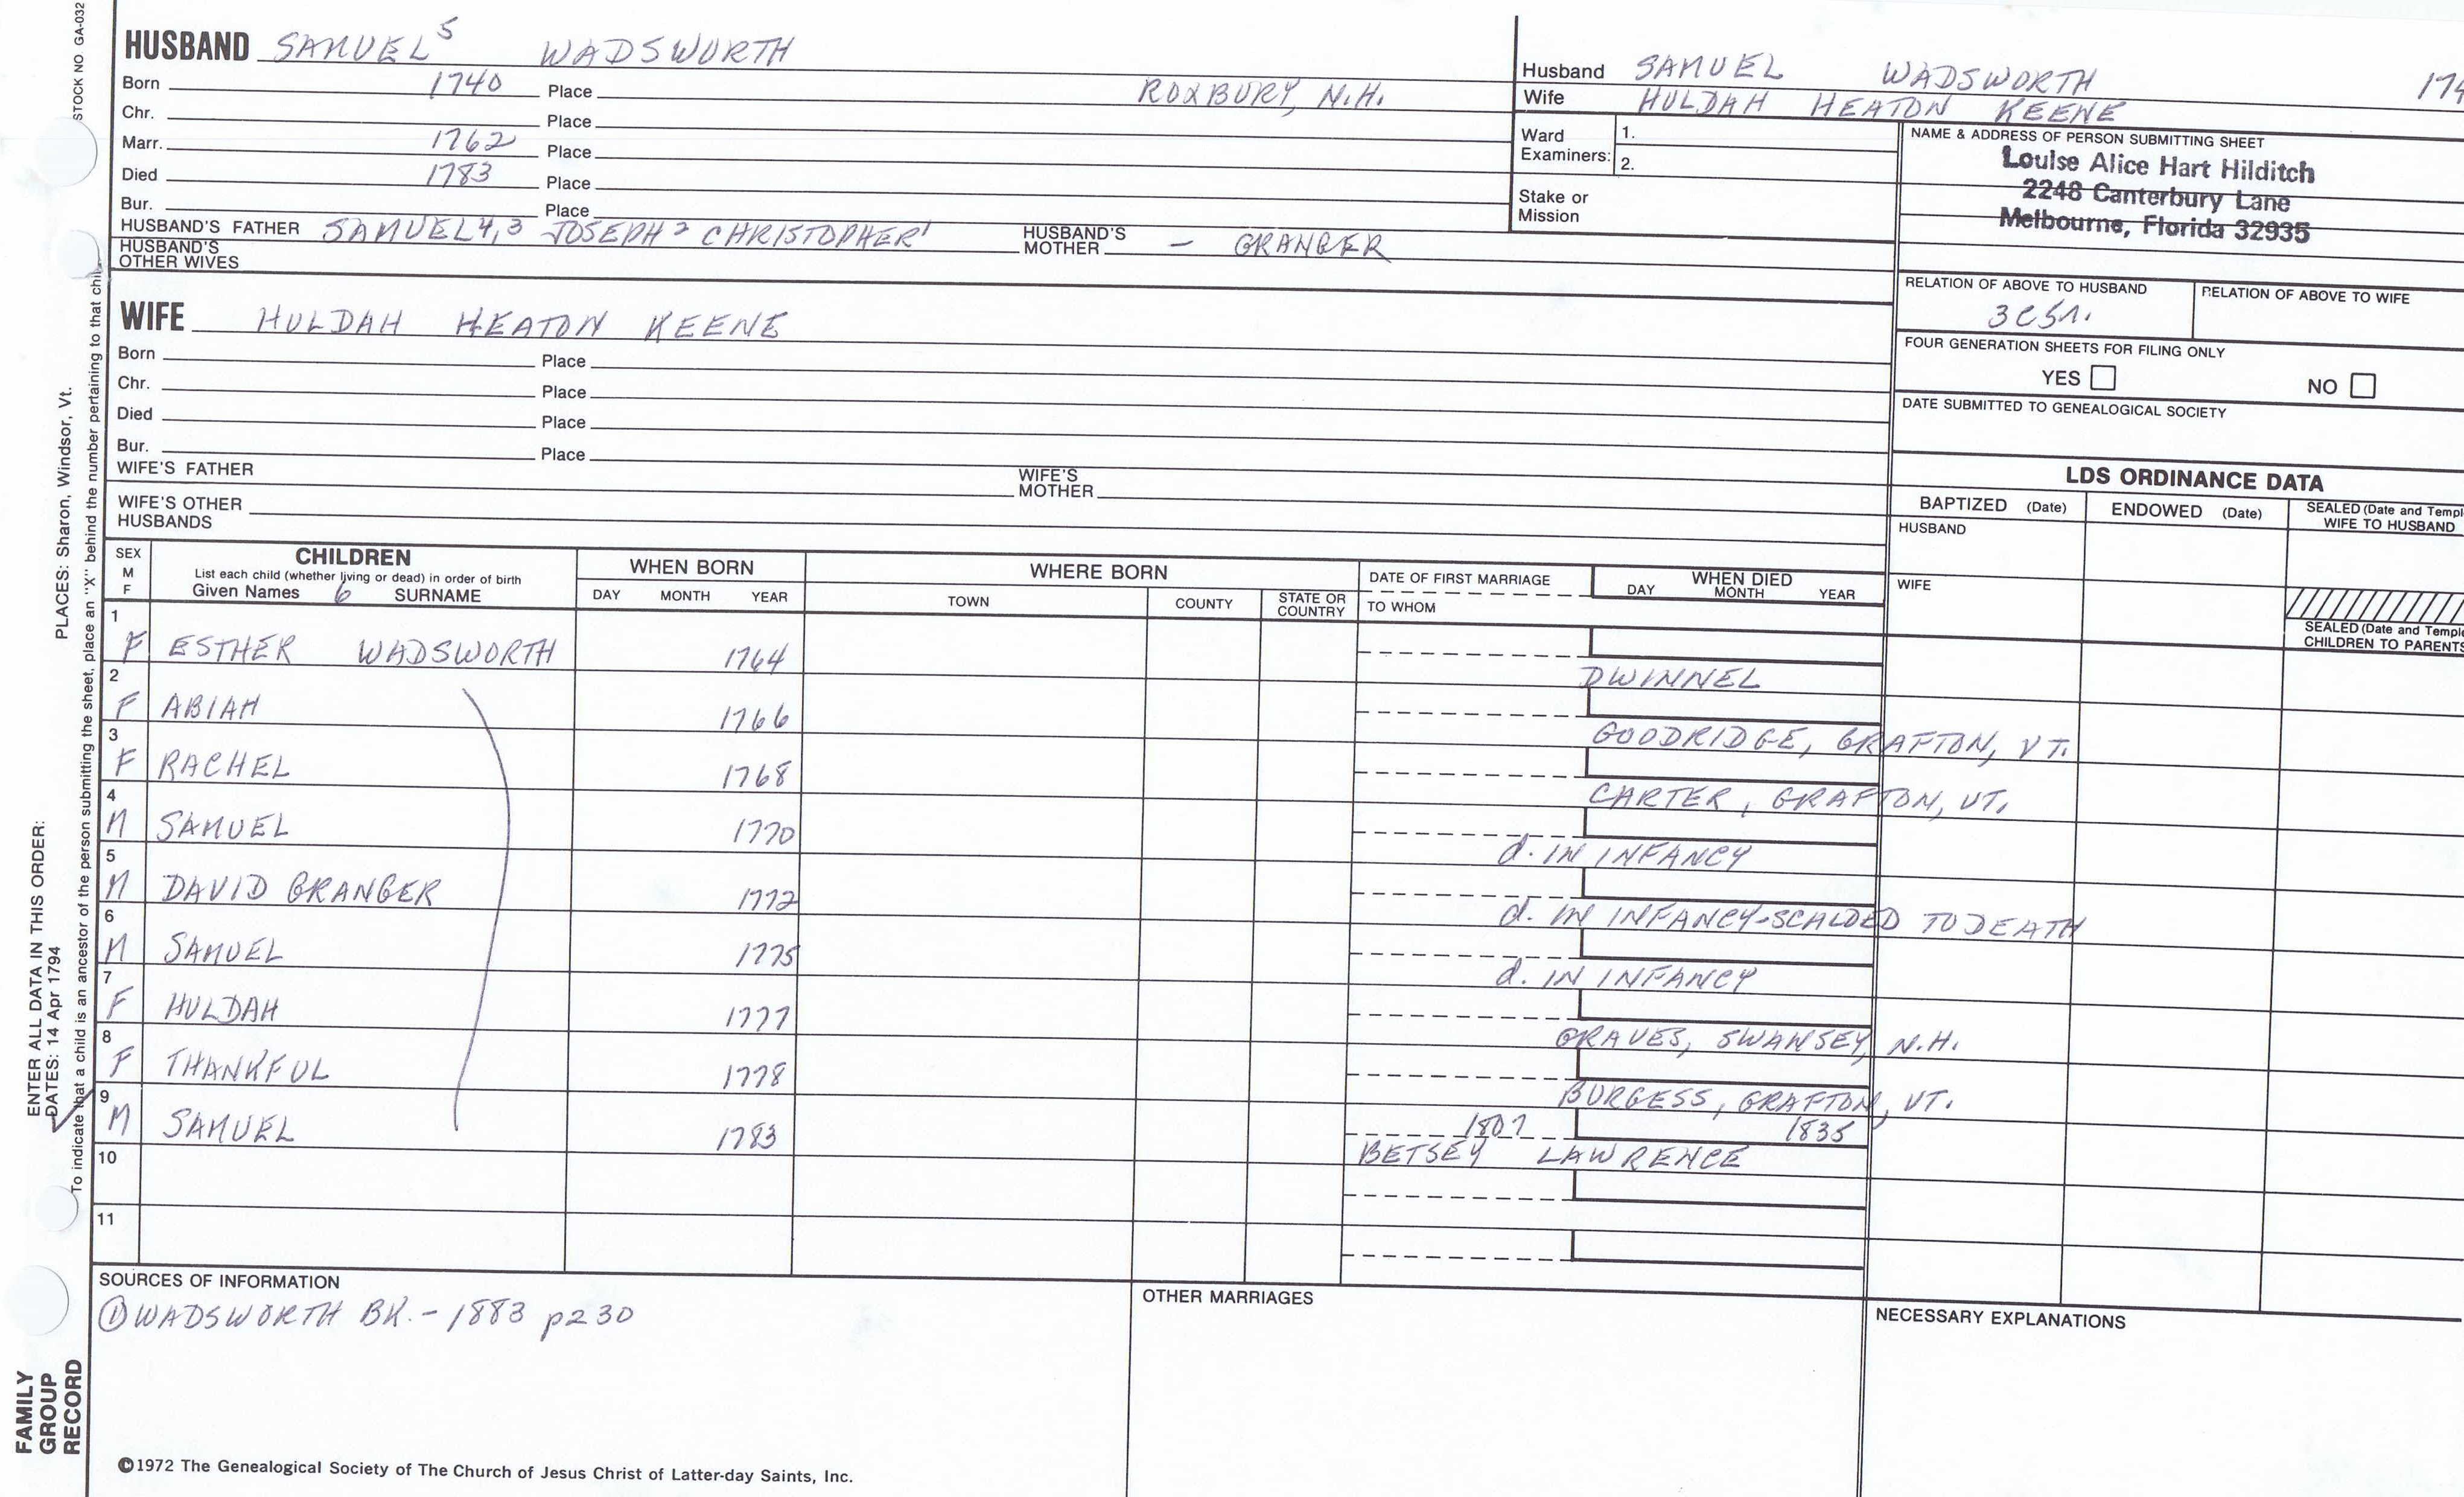 STOCK NO. GA-032
HUSBAND SAMUEL⁵ WADSWORTH
Born 1740 Place ROXBURY, N.H.
Chr. Place
Marr. 1762 Place
Died 1783 Place
Bur. Place
HUSBAND'S FATHER SAMUEL 4,3 JOSEPH² CHRISTOPHER¹ HUSBAND'S MOTHER – GRANGER
HUSBAND'S OTHER WIVES
WIFE HULDAH HEATON KEENE
Born Place
Chr. Place
Died Place
Bur. Place
WIFE'S FATHER WIFE'S MOTHER
WIFE'S OTHER HUSBANDS
Husband SAMUEL WADSWORTH 174
Wife HULDAH HEATON KEENE
Ward Examiners: 1.
2.
Stake or Mission
NAME & ADDRESS OF PERSON SUBMITTING SHEET
Louise Alice Hart Hilditch
2248 Canterbury Lane
Melbourne, Florida 32935
RELATION OF ABOVE TO HUSBAND RELATION OF ABOVE TO WIFE
3C5r.
FOUR GENERATION SHEETS FOR FILING ONLY
YES NO
DATE SUBMITTED TO GENEALOGICAL SOCIETY
LDS ORDINANCE DATA
BAPTIZED (Date) ENDOWED (Date) SEALED (Date and Templ
WIFE TO HUSBAND
HUSBAND
WIFE
SEALED (Date and Temple
CHILDREN TO PARENTS
SEX M F
CHILDREN
List each child (whether living or dead) in order of birth
Given Names 6 SURNAME
WHEN BORN
DAY MONTH YEAR
WHERE BORN
TOWN COUNTY STATE OR COUNTRY
DATE OF FIRST MARRIAGE
TO WHOM
WHEN DIED
DAY MONTH YEAR
1 F ESTHER WADSWORTH 1764
DWINNEL
2 F ABIAH 1766
GOODRIDGE, GRAFTON, VT.
3 F RACHEL 1768
CARTER, GRAFTON, VT.
4 M SAMUEL 1770
d. IN INFANCY
5 M DAVID GRANGER 1772
d. IN INFANCY-SCALDED TO DEATH
6 M SAMUEL 1775
d. IN INFANCY
7 F HULDAH 1777
GRAVES, SWANSEY, N.H.
8 F THANKFUL 1778
BURGESS, GRAFTON, VT.
9 M SAMUEL 1783 1807 1835
BETSEY LAWRENCE
10
11
SOURCES OF INFORMATION
① WADSWORTH BK. - 1883 p230
OTHER MARRIAGES
NECESSARY EXPLANATIONS
©1972 The Genealogical Society of The Church of Jesus Christ of Latter-day Saints, Inc.
FAMILY
GROUP
RECORD
ENTER ALL DATA IN THIS ORDER:
DATES: 14 Apr 1794
PLACES: Sharon, Windsor, Vt.
To indicate that a child is an ancestor of the person submitting the sheet, place an "X" behind the number pertaining to that chi